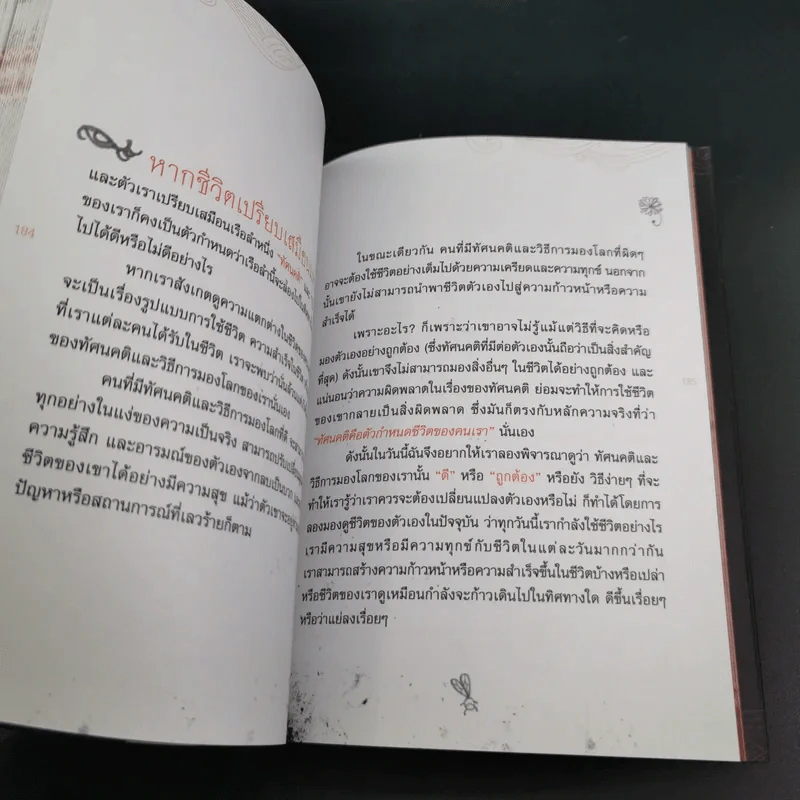 หากชีวิตเปรียบเสมือน
และตัวเราเปรียบเสมือนเรือลำหนึ่ง "ทัศนคติ"
ของเราก็คงเป็นตัวกำหนดว่าเรือลำนี้จะล่อง
ไปได้ดีหรือไม่ดีอย่างไร
184
หากเราสังเกตดูความแตกต่างในชีวิต
จะเป็นเรื่องรูปแบบการใช้ชีวิต ความสำเร็จในชีวิต
ที่เราแต่ละคนได้รับในชีวิต เราจะพบว่านั่นล้วน
ของทัศนคติและวิธีการมองโลกของเรานั่นเอง
คนที่มีทัศนคติและวิธีการมองโลกที่ดี
ทุกอย่างในแง่ของความเป็นจริง สามารถปรับเปลี่ยน
ความรู้สึก และอารมณ์ของตัวเองจากลบเป็นบวก
ชีวิตของเขาได้อย่างมีความสุข แม้ว่าตัวเขาจะ
ปัญหาหรือสถานการณ์ที่เลวร้ายก็ตาม
ในขณะเดียวกัน คนที่มีทัศนคติและวิธีการมองโลกที่ผิดๆ
อาจจะต้องใช้ชีวิตอย่างเต็มไปด้วยความเครียดและความทุกข์ นอกจาก
นั้นเขายังไม่สามารถนำพาชีวิตตัวเองไปสู่ความก้าวหน้าหรือความ
สำเร็จได้
เพราะอะไร? ก็เพราะว่าเขาอาจไม่รู้แม้แต่วิธีที่จะคิดหรือ
มองตัวเองอย่างถูกต้อง (ซึ่งทัศนคติที่มีต่อตัวเองนั้นถือว่าเป็นสิ่งสำคัญ
ที่สุด) ดังนั้นเขาจึงไม่สามารถมองสิ่งอื่นๆ ในชีวิตได้อย่างถูกต้อง และ
แน่นอนว่าความผิดพลาดในเรื่องของทัศนคติ ย่อมจะทำให้การใช้ชีวิต
ของเขากลายเป็นสิ่งผิดพลาด ซึ่งมันก็ตรงกับหลักความจริงที่ว่า
"ทัศนคติคือตัวกำหนดชีวิตของคนเรา" นั่นเอง
185
ดังนั้นในวันนี้ฉันจึงอยากให้เราลองพิจารณาดูว่า ทัศนคติและ
วิธีการมองโลกของเรานั้น "ดี" หรือ "ถูกต้อง" หรือยัง วิธีง่ายๆ ที่จะ
ทำให้เรารู้ว่าเราควรจะต้องเปลี่ยนแปลงตัวเองหรือไม่ ก็ทำได้โดยการ
ลองมองดูชีวิตของตัวเองในปัจจุบัน ว่าทุกวันนี้เรากำลังใช้ชีวิตอย่างไร
เรามีความสุขหรือมีความทุกข์กับชีวิตในแต่ละวันมากกว่ากัน
เราสามารถสร้างความก้าวหน้าหรือความสำเร็จขึ้นในชีวิตบ้างหรือเปล่า
หรือชีวิตของเราดูเหมือนกำลังจะก้าวเดินไปในทิศทางใด ดีขึ้นเรื่อยๆ
หรือว่าแย่ลงเรื่อยๆ